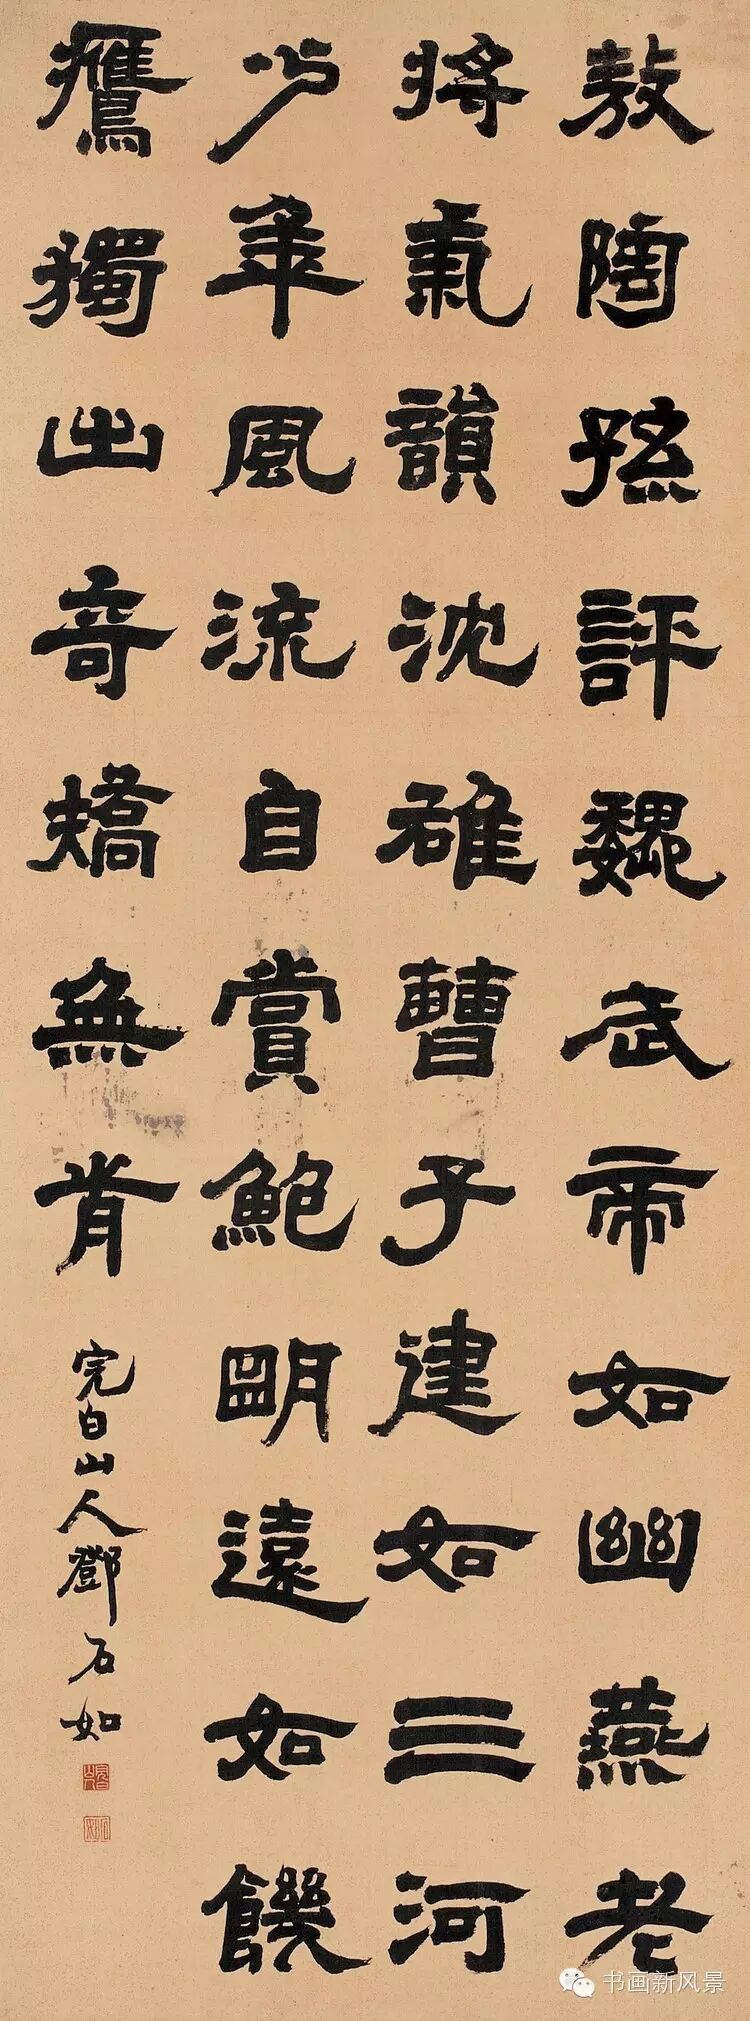 敖陶孫評魏武帝如幽燕老
將氣韻沈雄曹子建如三河
少年風流自賞鮑明遠如饑
鷹獨出奇矯無前
完白山人鄧石如
书画新风景